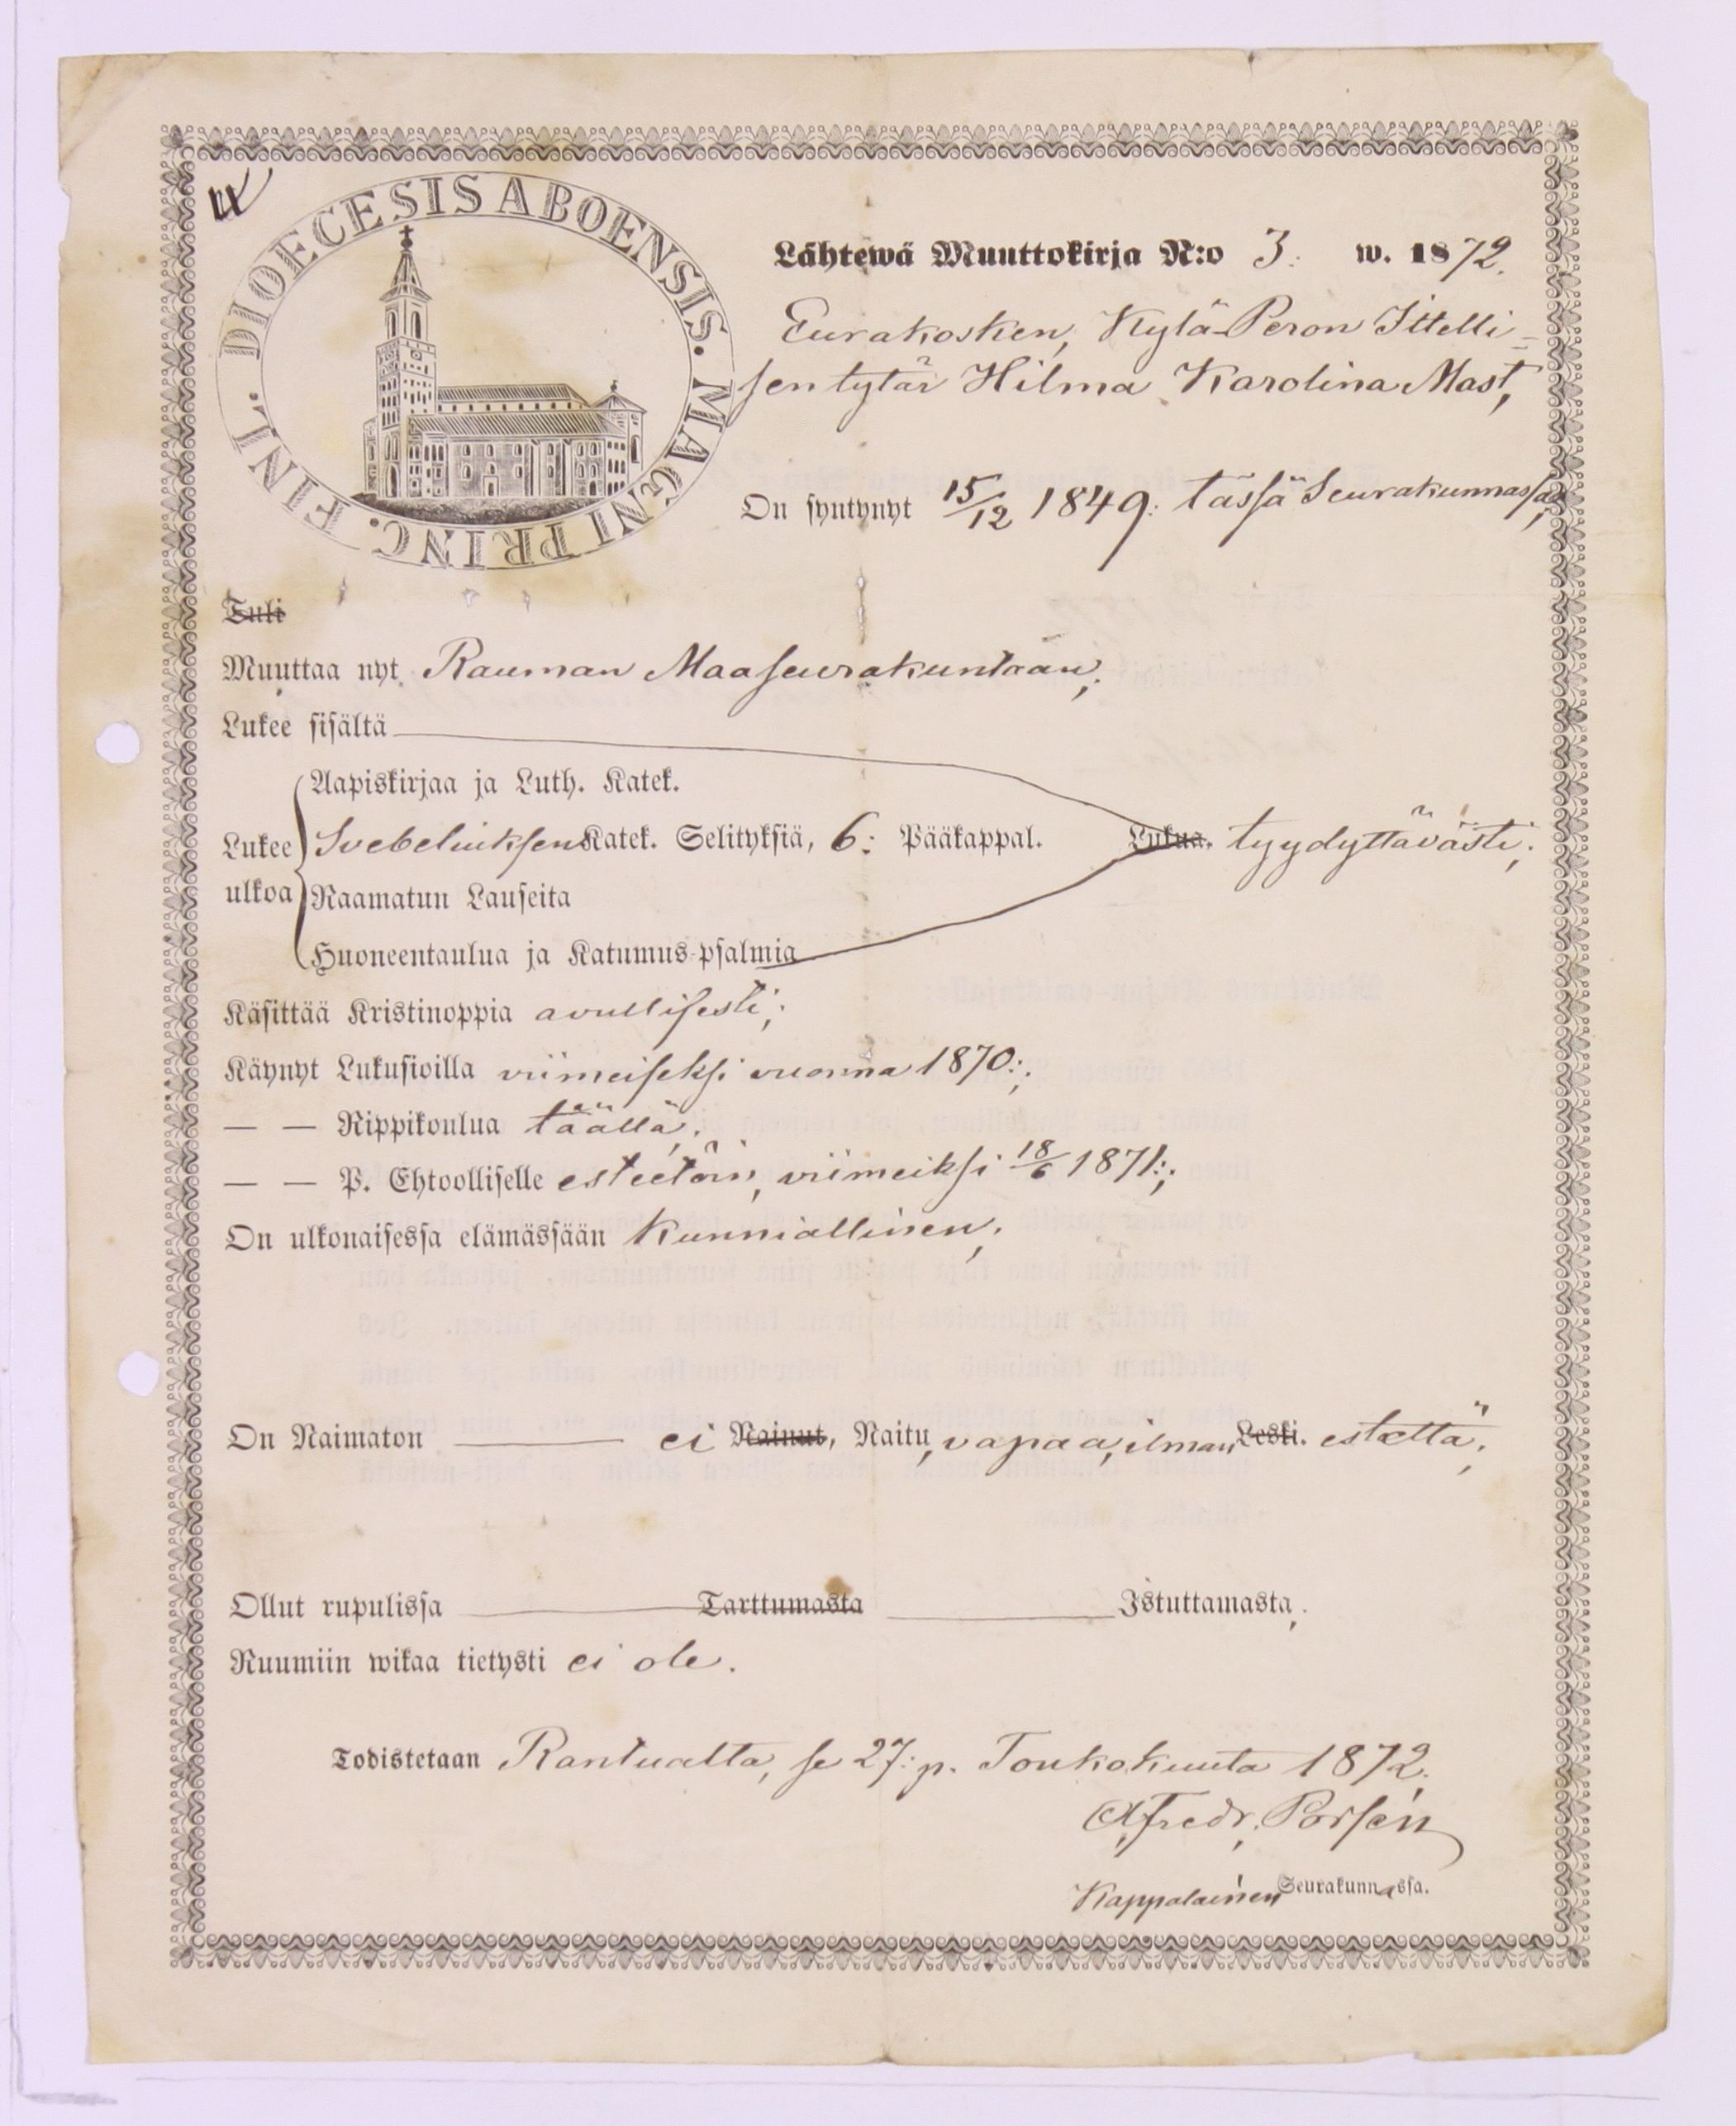 DIOECESIS ABOENSIS. MAGNI PRINC. FINL.
Lähtewä Muuttokirja N:o 3: w. 1872.
Eurakosken, Kylä-Peron Ittelli=
sen tytär Hilma Karolina Mast,
On syntynyt 15/12 1849: tässä Seurakunnassa;
Tuli
Muuttaa nyt Rauman Maaseurakuntaan;
Lukee sisältä
Aapiskirjaa ja Luth. Katek.
Lukee ulkoa Svebeliuksen Katek. Selityksiä, 6: Pääkappal. Lukua. tyydyttävästi;
Raamatun Lauseita
Huoneentaulua ja Katumus-psalmia
Käsittää Kristinoppia avullisesti;
Käynyt Lukusioilla viimeiseksi vuonna 1870:;
— — Rippikoulua täällä;
— — P. Ehtoolliselle esteetöin, viimeiksi 18/6 1871:;
On ulkonaisessa elämässään kunniallinen;
On Naimaton ei Nainut, Naitu, vapaa, ilman Leski. estettä;
Ollut rupulissa Tarttumasta Istuttamasta;
Ruumiin wikaa tietysti ei ole.
Todistetaan Rantualta, se 27: p. Toukokuuta 1872.
A, Fredr, Porsén
Kappalainen Seurakunnassa.